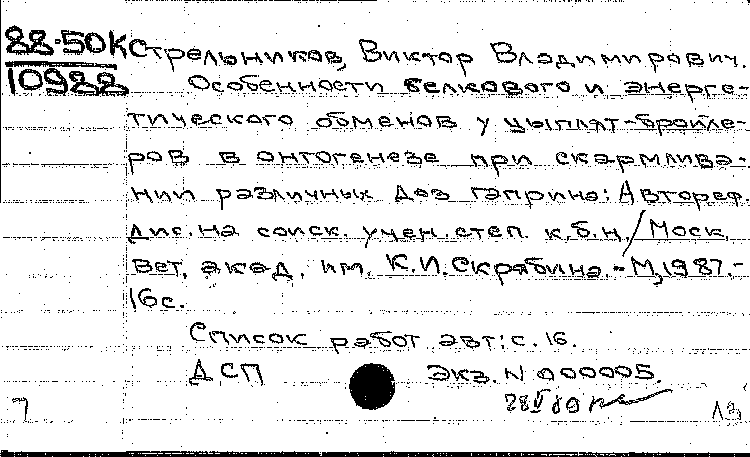 88-50К Стрельников, Виктор Владимирович.
10988 Особенности белкового и энерге-
тического обменов у цыплят-бройле-
ров в онтогенезе при скармлива-
нии различных доз гаприна: Автореф.
дис. на соиск. учен. степ. к.б.н. / Моск.
вет. акад. им. К.И. Скрябина. - М, 1987. -
16с.
Список работ авт.: с. 16.
ДСП Экз. N 000005.
28 V 89